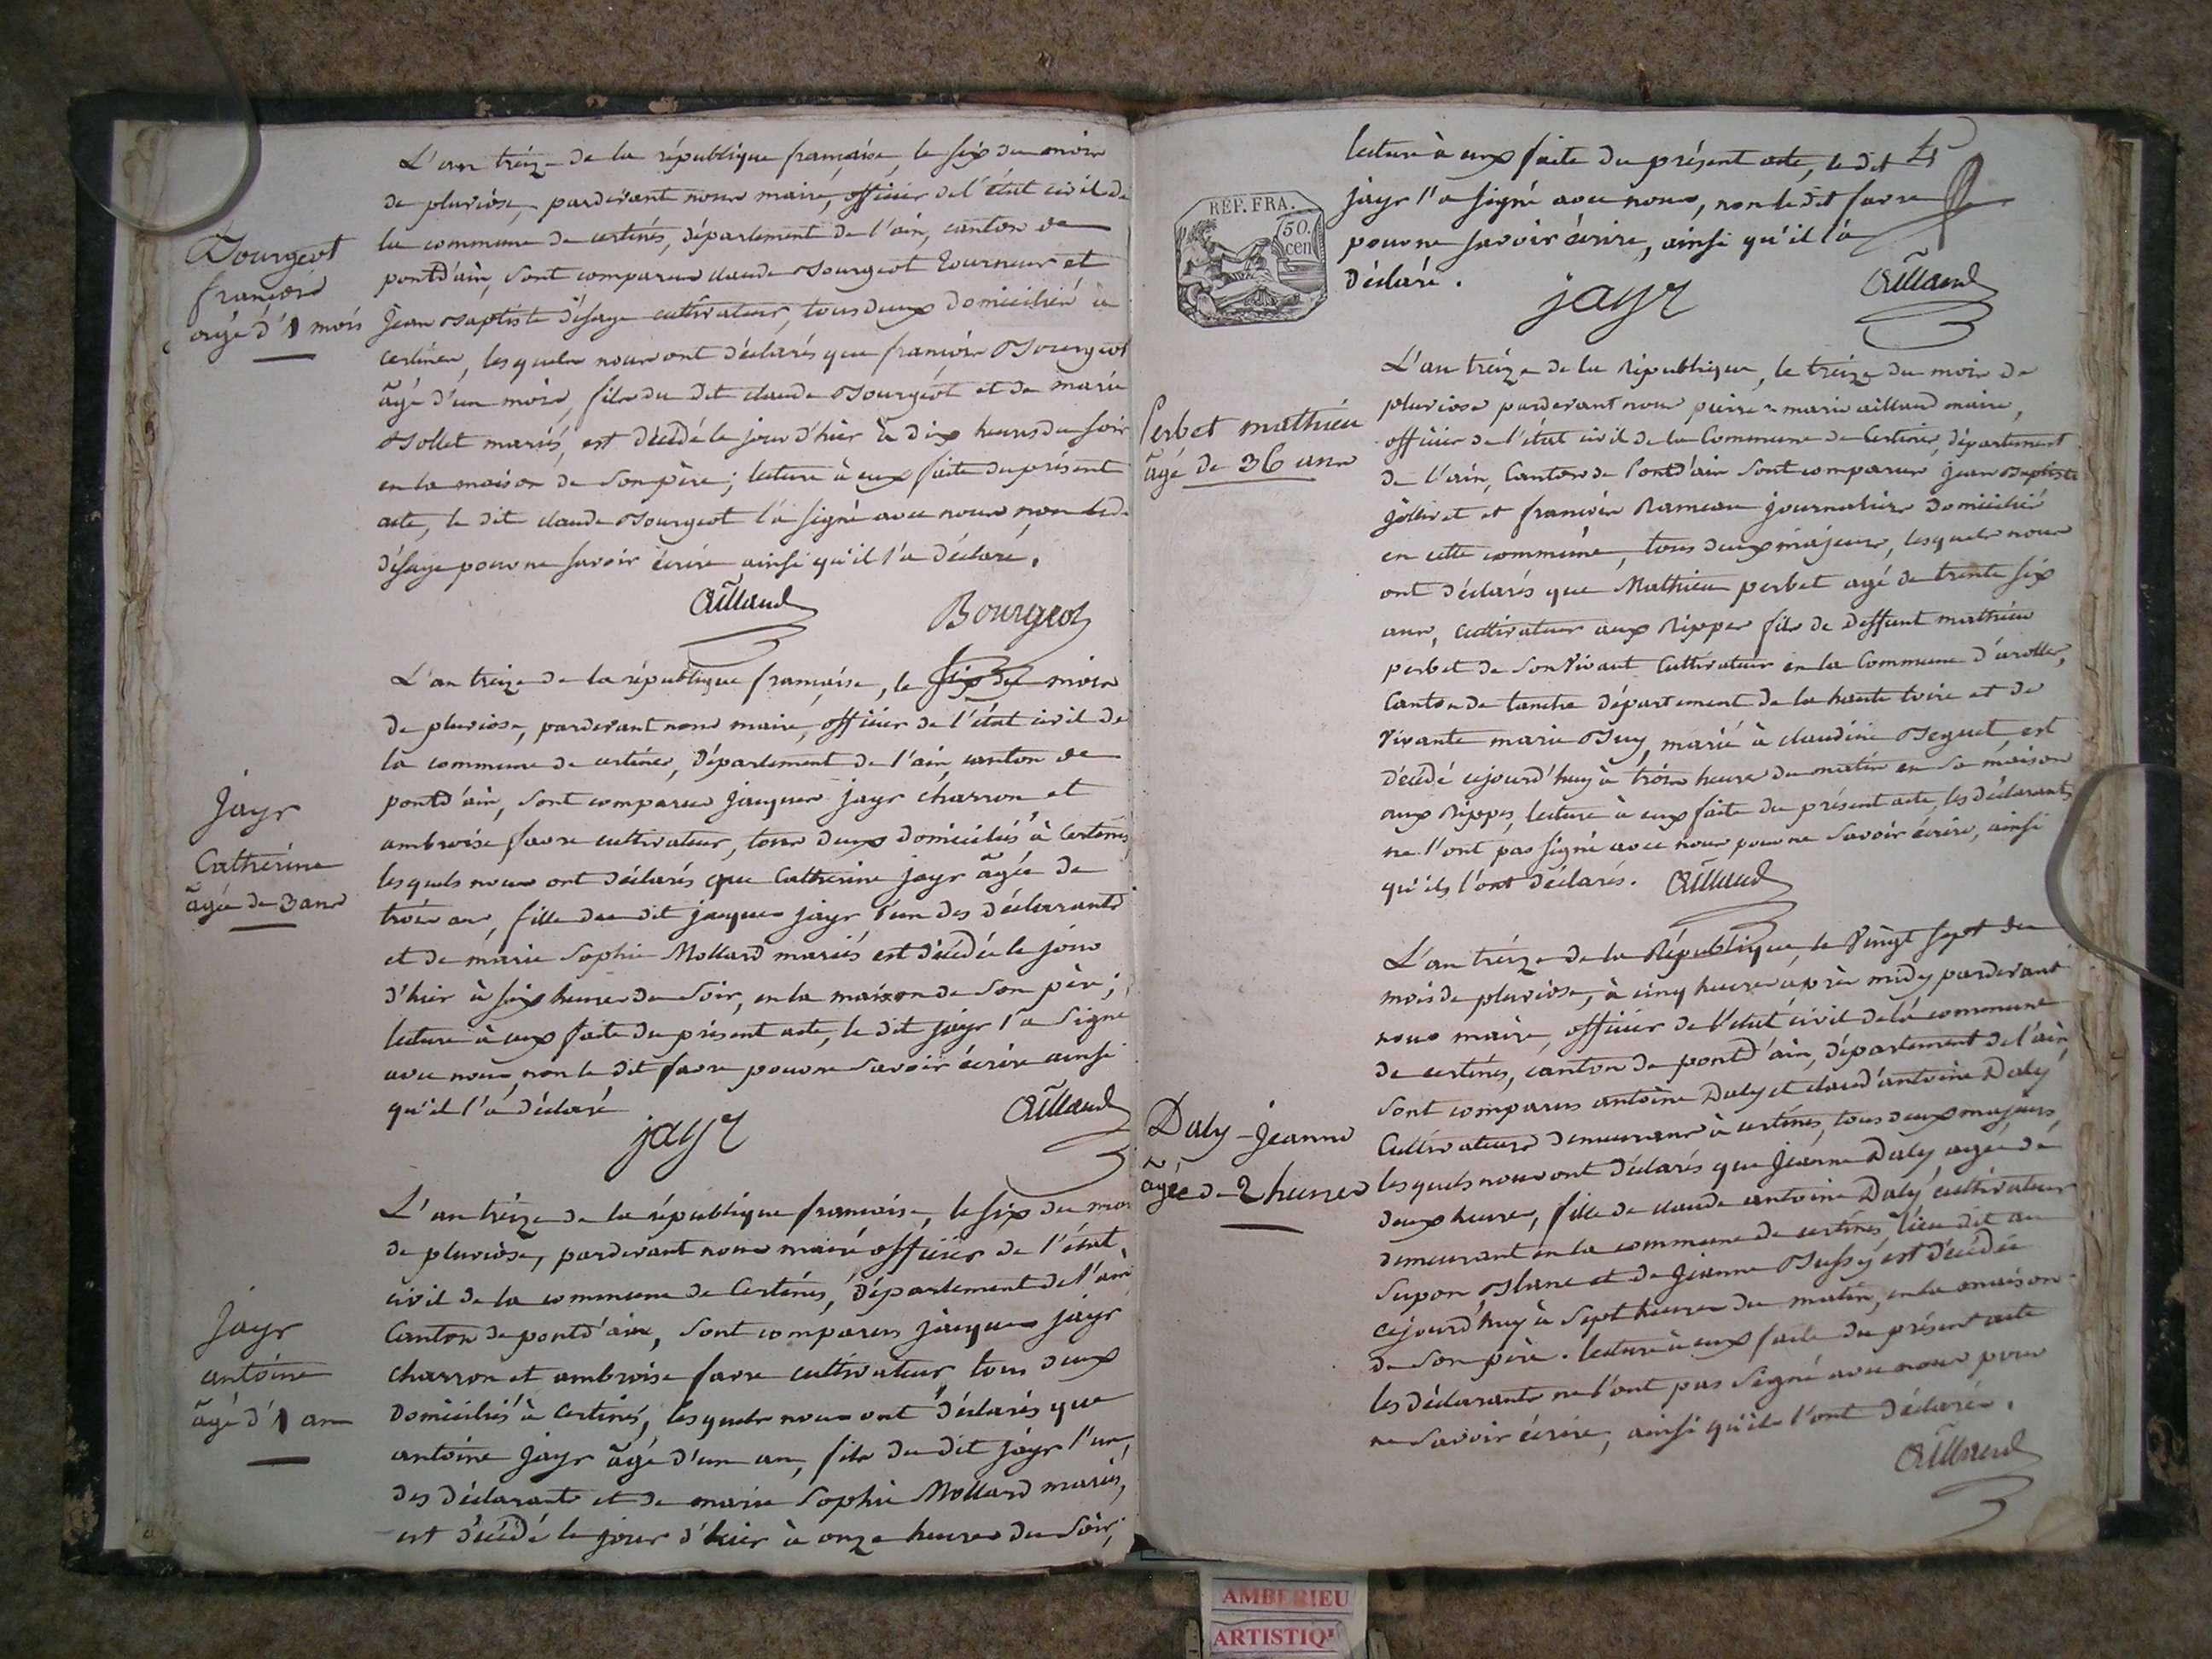 L'an treize de la république française, le six du mois
de pluviôse, pardevant nous maire, officier de l'état civil de
la commune de certines, département de l'ain, canton de
pontd'ain, sont comparus claude Bourgeot tourneur et
Jean Baptiste désage cultivateur, tous deux domiciliés à
certines, lesquels nous ont déclarés que françois Bourgeot
âgé d'un mois, fils du dit claude Bourgeot et de marie
Bollet mariés, est décédé le jour d'hier à dix heures du soir
en la maison de son père; lecture à eux faite du présent
acte, le dit claude Bourgeot l'a signé avec nous non led.
désage pour ne savoir écrire ainsi qu'il l'a déclaré.
Bourgeot
françois
âgé d'1 mois
Aillaud Bourgeot
L'an treize de la république française, le six du mois
de pluviose, pardevant nous maire, officier de l'état civil de
la commune de certines, département de l'ain, canton de
pontd'ain, sont comparus jacques jayr charron et
ambroise favre cultivateur, tous deux domiciliés à Certines,
lesquels nous ont déclarés que Catherine jayr âgée de
trois ans, fille du dit jacques jayr l'un des déclarants
et de marie Sophie Mollard mariés est décédée le jour
d'hier à six heures du soir, en la maison de son père;
lecture à eux faite du présent acte, le dit jayr l'a signé
avec nous, non le dit favre pour ne savoir écrire ainsi
qu'il l'a déclaré
Jayr
Catherine
âgée de 3 ans
jayr Aillaud
L'an treize de la république françoise, le six du mois
de pluviôse, pardevant nous maire officier de l'état
civil de la commune de Certines, département de l'ain
Canton de pontd'ain, sont comparus jacques jayr
charron et ambroise favre cultivateur tous deux
Domiciliés à Certines, lesquels nous ont déclarés que
antoine Jayr âgé d'un an, fils du dit jayr l'un
des déclarants et de marie Sophie Mollard mariés,
est décédé le jour d'hier à onze heures du soir,
Jayr
antoine
âgé d'1 an
4
lecture à eux faite du présent acte, le dit
jayr l'a signé avec nous, non le dit favre
pour ne savoir écrire, ainsi qu'il l'a
déclaré.
REP. FRA.
50.
cen
jayr Aillaud
L'an treize de la République, le treize du mois de
pluviose pardevant nous pierre marie aillaud maire,
officier de l'état civil de la Commune de Certines, département
de l'ain, Canton de Pontd'ain sont comparus Jean Baptiste
jollivet et françois Rameau journaliers domiciliés
en cette commune, tous deux majeurs, lesquels nous
ont déclarés que Mathieu perbet agé de trente six
ans, Cultivateur aux Rippes fils de deffunt mathieu
perbet de son vivant Cultivateur en la Commune d'
Canton de département de la haute loire et de
vivante marie marié à claudine est
décédé cejourd'huy à trois heures du matin en sa maison
aux Rippes, lecture à eux faite du présent acte, les déclarants
ne l'ont pas signé avec nous pour ne savoir écrire, ainsi
qu'ils l'ont déclarés. Aillaud
Perbet mathieu
âgé de 36 ans
L'an treize de la République, le Vingt sept du
mois de pluviose, à cinq heures après midy pardevant
nous maire, officier de l'état civil de la commune
de certines, canton de pontd'ain, département de l'ain
sont comparus antoine Daly et claud'antoine Daly
Cultivateurs demeurans à certines, tous deux majeurs,
lesquels nous ont déclarés que Jeanne Daly agée de
deux heures, fille de claude antoine Daly cultivateur
demeurant en la commune de certines, lieu dit au
Sapon Blanc et de Jeanne est décédée
cejourd'huy à sept heures du matin, en la maison
de son père. lecture à eux faite du présent acte
les déclarants ne l'ont pas signé avec nous pour
ne savoir écrire, ainsi qu'ils l'ont déclarés.
Aillaud
Daly Jeanne
âgée de 2 heures
AMBERIEU
ARTISTIQ